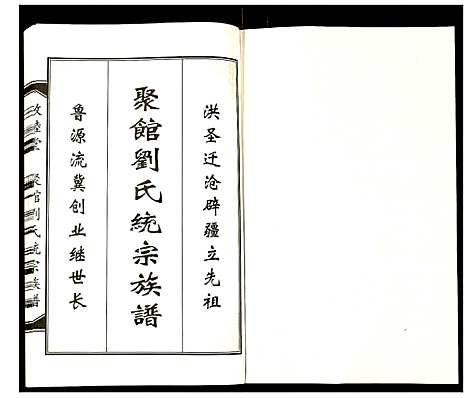 洪圣迁沧辟疆立先祖
聚館劉氏統宗族譜
鲁源流冀创业继世长
敦睦堂 聚館刘氏統宗族譜